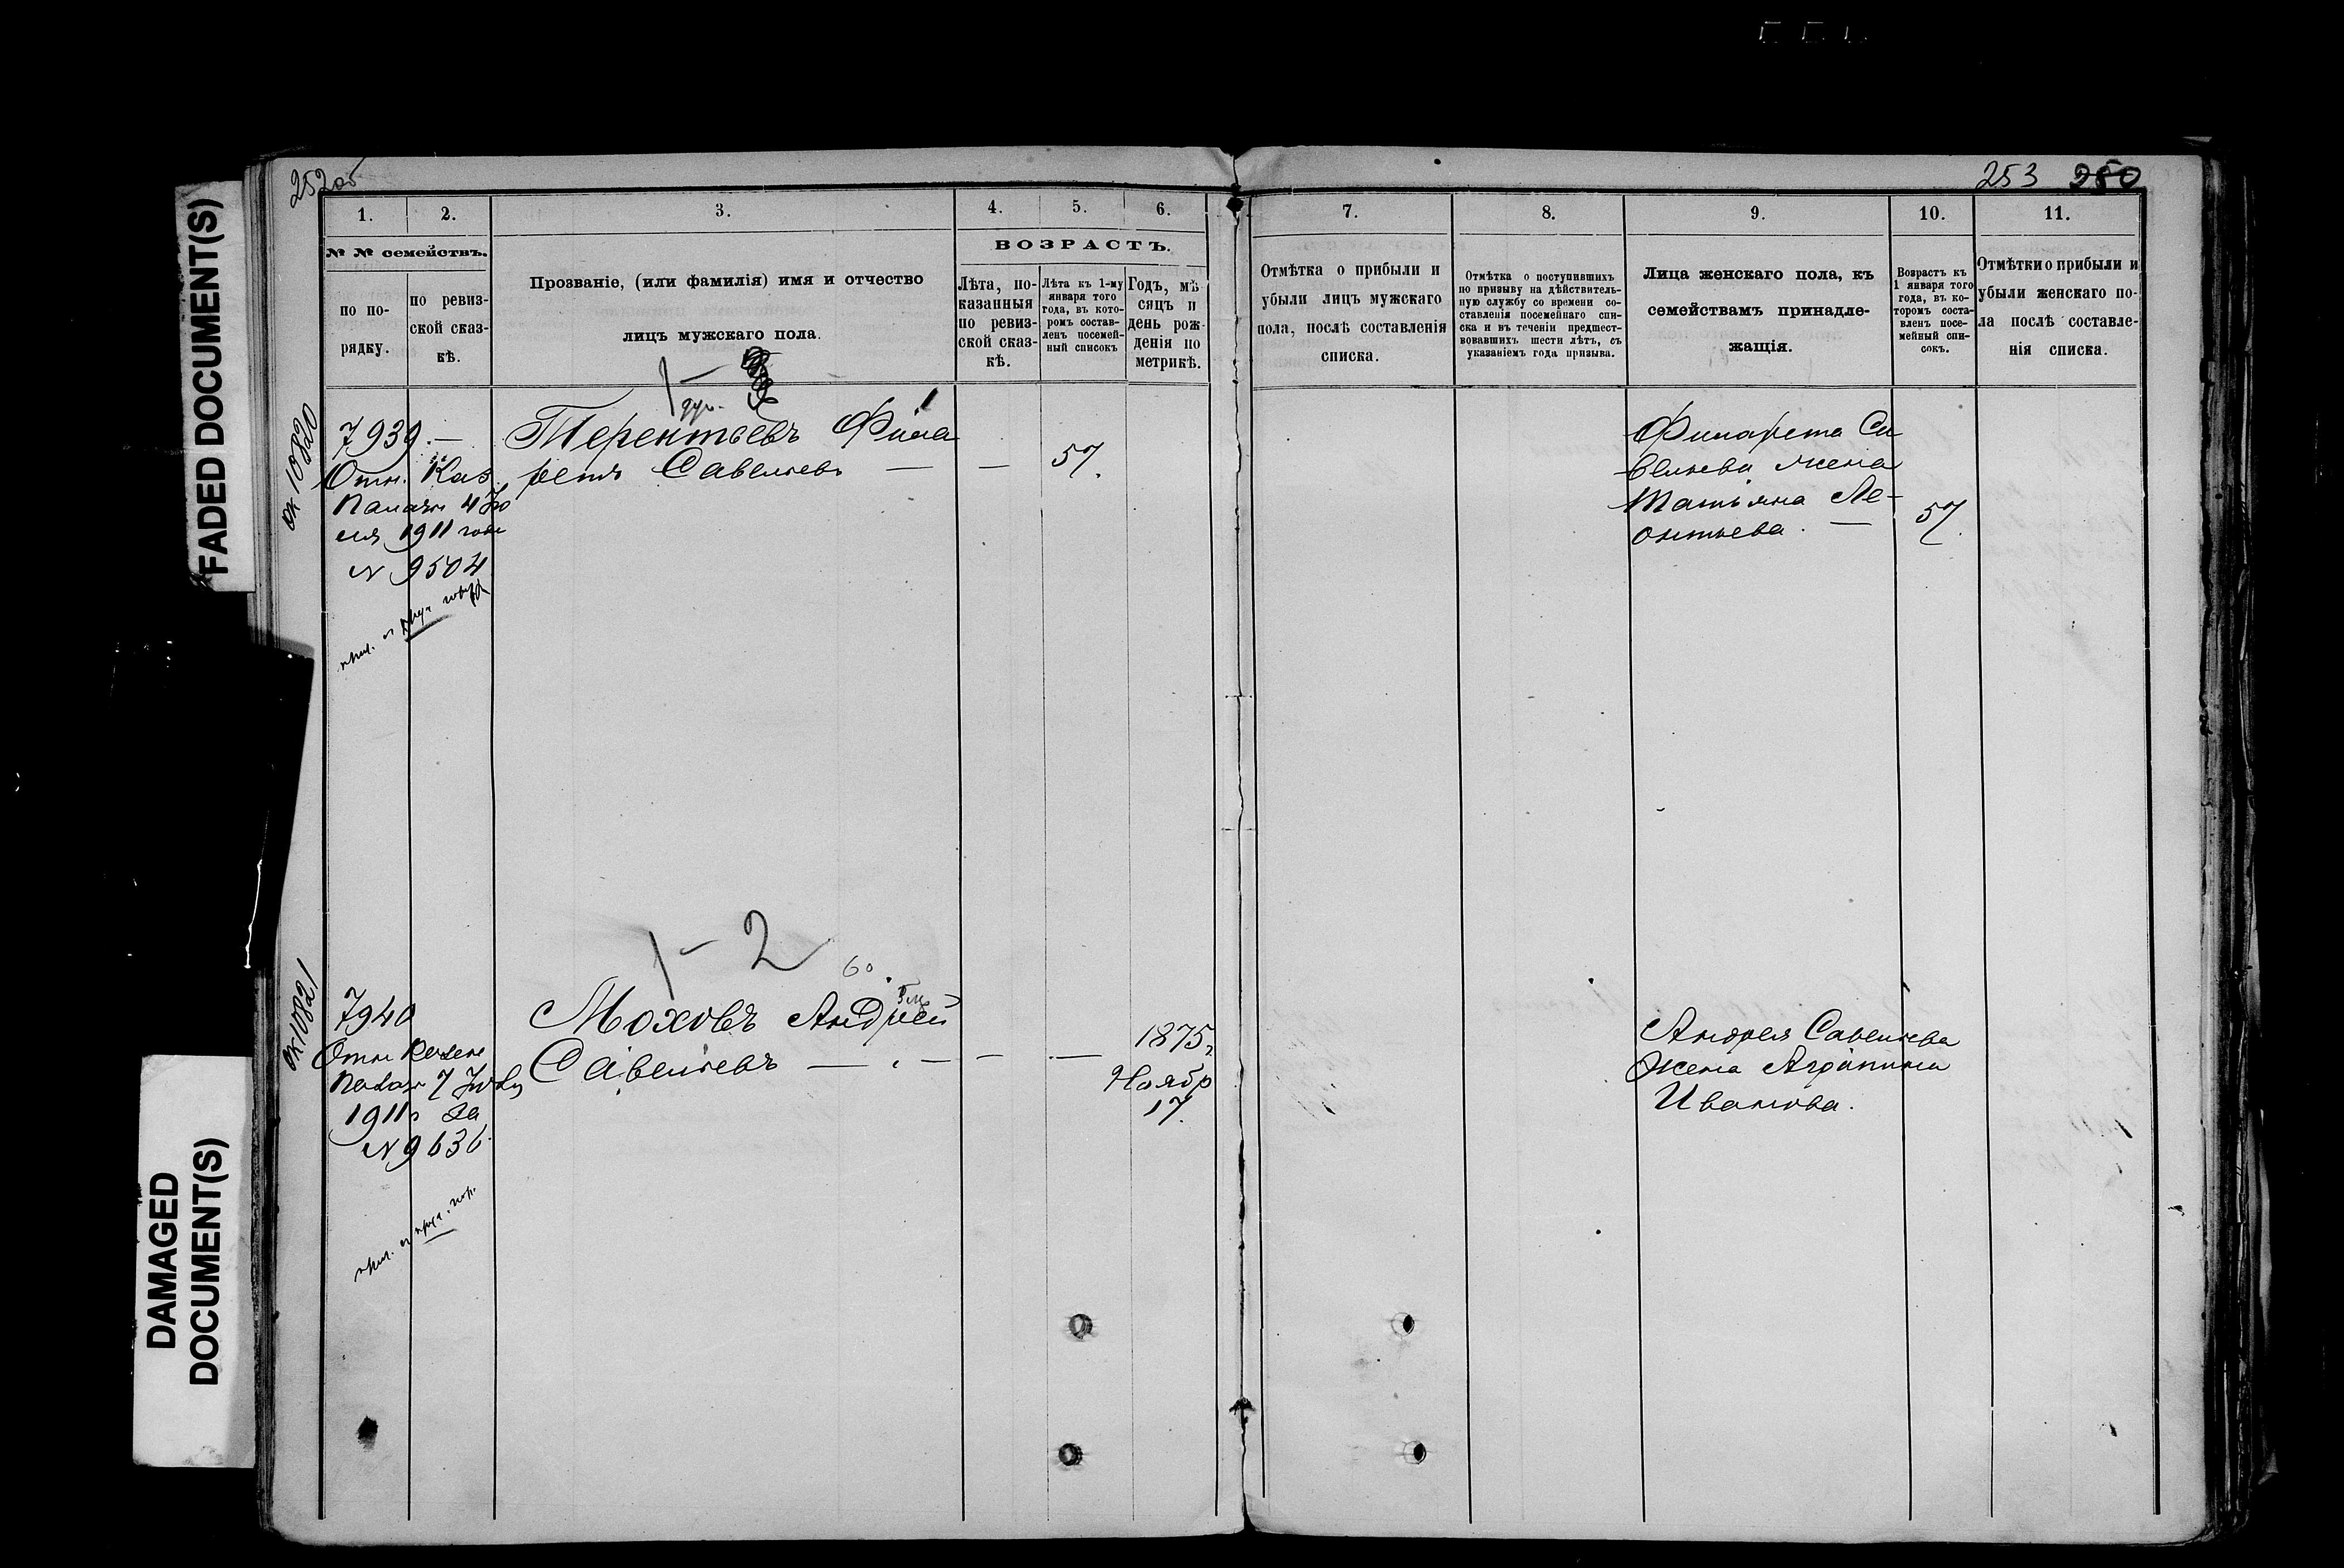 FADED DOCUMENT(S)
DAMAGED
DOCUMENT(S)
252об
253 250
1. 2. 3. 4. 5. 6.
№ № семействъ.
по по-
рядку.
по ревиз-
ской сказ-
кѣ.
Прозваніе, (или фамилія) имя и отчество
лицъ мужскаго пола.
ВОЗРАСТЪ.
Лѣта, по-
казанныя
по ревиз-
ской сказ-
кѣ.
Лѣта къ 1-му
января того
года, въ кото-
ромъ состав-
ленъ посемей-
ный списокъ
Годъ, мѣ-
сяцъ и
день рож-
денія по
метрикѣ.
7. 8. 9. 10. 11.
Отмѣтка о прибыли и
убыли лицъ мужскаго
пола, послѣ составленія
списка.
Отмѣтка о поступившихъ
по призыву на дѣйствитель-
ную службу со времени со-
ставленія посемейнаго спи-
ска и въ теченіи предшест-
вовавшихъ шести лѣтъ, съ
указаніемъ года призыва.
Лица женскаго пола, къ
семействамъ принадле-
жащія.
Возрастъ къ
1 января того
года, въ ко-
торомъ соста-
вленъ посе-
мейный спи-
сокъ.
Отмѣтки о прибыли и
убыли женскаго по-
ла послѣ составле-
нія списка.
ок 10820
7939.—
Отн. Каз.
Палаты 4 Ію
ля 1911 года
№ 9504
1 —
Терентьевъ Фила
ретъ Савельевъ — —
57.
Филарета Са
вельева жена
Татьяна Ле-
онтьева. —
57.
ок 10821
7940
Отн Казен
Палаты 7 Іюля
1911г за
№ 9636.
1 – 2
60
Моховъ Андрей
Савельевъ — — —
1875г
Ноябр
17.
Андрея Савельева
жена Агрипина
Иванова.